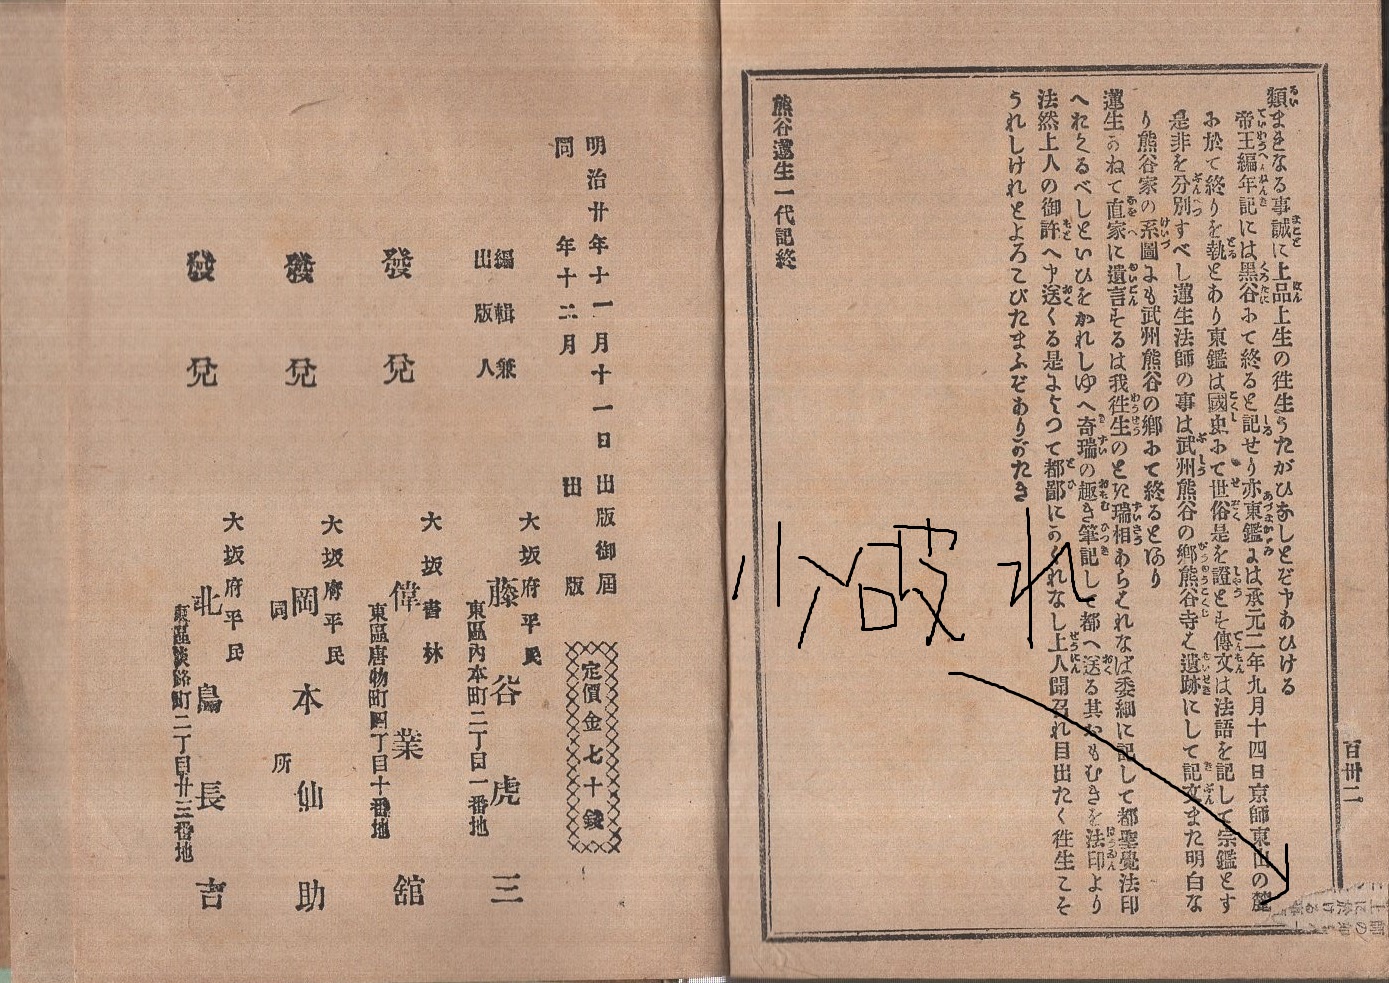 百卅二
類まきなる事誠に上品上生の徃生うたがひなしとぞ申あひける
帝王編年記には黒谷にて終ると記せり亦東鑑には承元二年九月十四日京師東山の麓
に於て終りを執とあり東鑑は國史にて世俗是を證とし傳文は法語を記して宗鑑とす
是非を分別すべし蓮生法師の事は武州熊谷の鄕熊谷寺を遺跡にして記文また明白な
り熊谷家の系圖にも武州熊谷の鄕にて終るとあり
蓮生かねて直家に遺言するは我徃生のとき瑞相あらはれなば委細に記して都聖覺法印
へおくるべしといひをかれしゆへ奇瑞の趣き筆記して都へ送る其おもむきを法印より
法然上人の御許へ申送くる是によつて都鄙にかくれなし上人聞召れ目出たく徃生こそ
うれしけれとよろこびたまふぞありがたき
熊谷蓮生一代記終
小破れ
明治廿年十一月十一日出版御屆
同年十二月出版
定價金七十錢
編輯兼
出版人
大坂府平民
藤谷虎三
東區內本町二丁目一番地
發兌
大坂書林
偉業舘
東區唐物町四丁目十番地
發兌
大坂府平民
岡本仙助
同所
發兌
大坂府平民
北島長吉
東區淡路町二丁目廿三番地